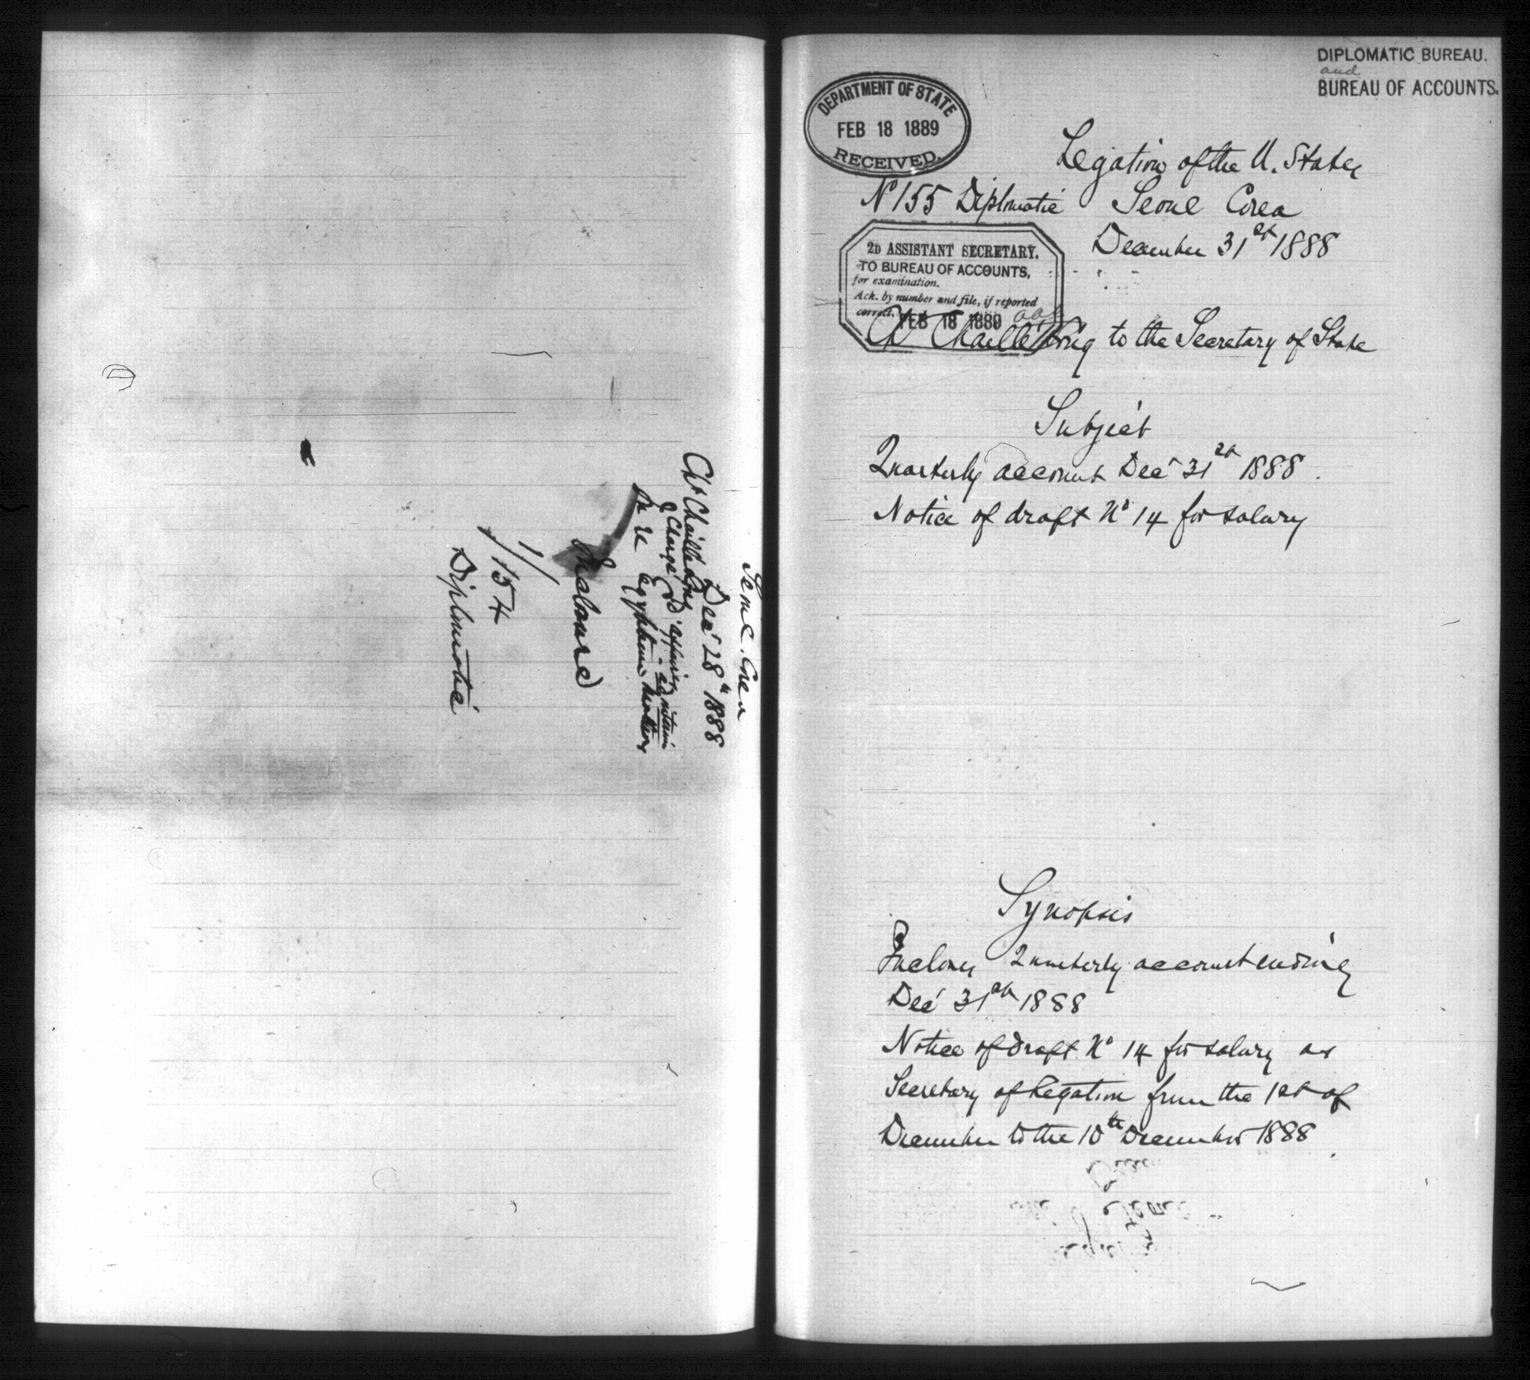 Seoul. Corea
Decr 28th 1888
Ch Chaillé Long
Chargé d'affaires ad interim
In re Egyptian
1/
154
Diplomatic
DIPLOMATIC BUREAU.
and
BUREAU OF ACCOUNTS.
DEPARTMENT OF STATE
FEB 18 1889
RECEIVED.
Legation of the U. States
No 155 Diplomatic Seoul Corea
December 31st 1888
2D ASSISTANT SECRETARY.
TO BUREAU OF ACCOUNTS,
for examination.
Ack. by number and file, if reported
correct.
FEB 18 1889
Ch Chaillé Long to the Secretary of State
Subject
Quarterly account Dec 31st 1888.
Notice of draft No 14 for salary
Synopsis
Incloses Quarterly account ending
Dec 31st 1888
Notice of draft No 14 for salary as
Secretary of Legation from the 1st of
December to the 10th December 1888.